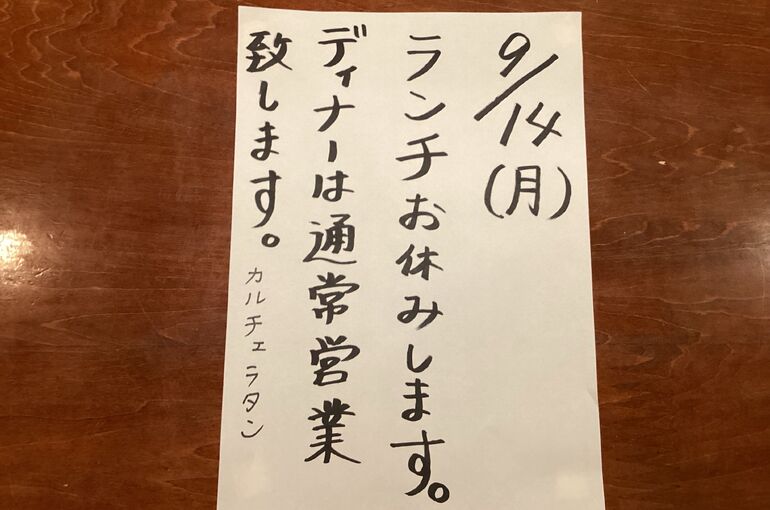 9/14(月)
ランチお休みします。
ディナーは通常営業
致します。
カルチェラタン